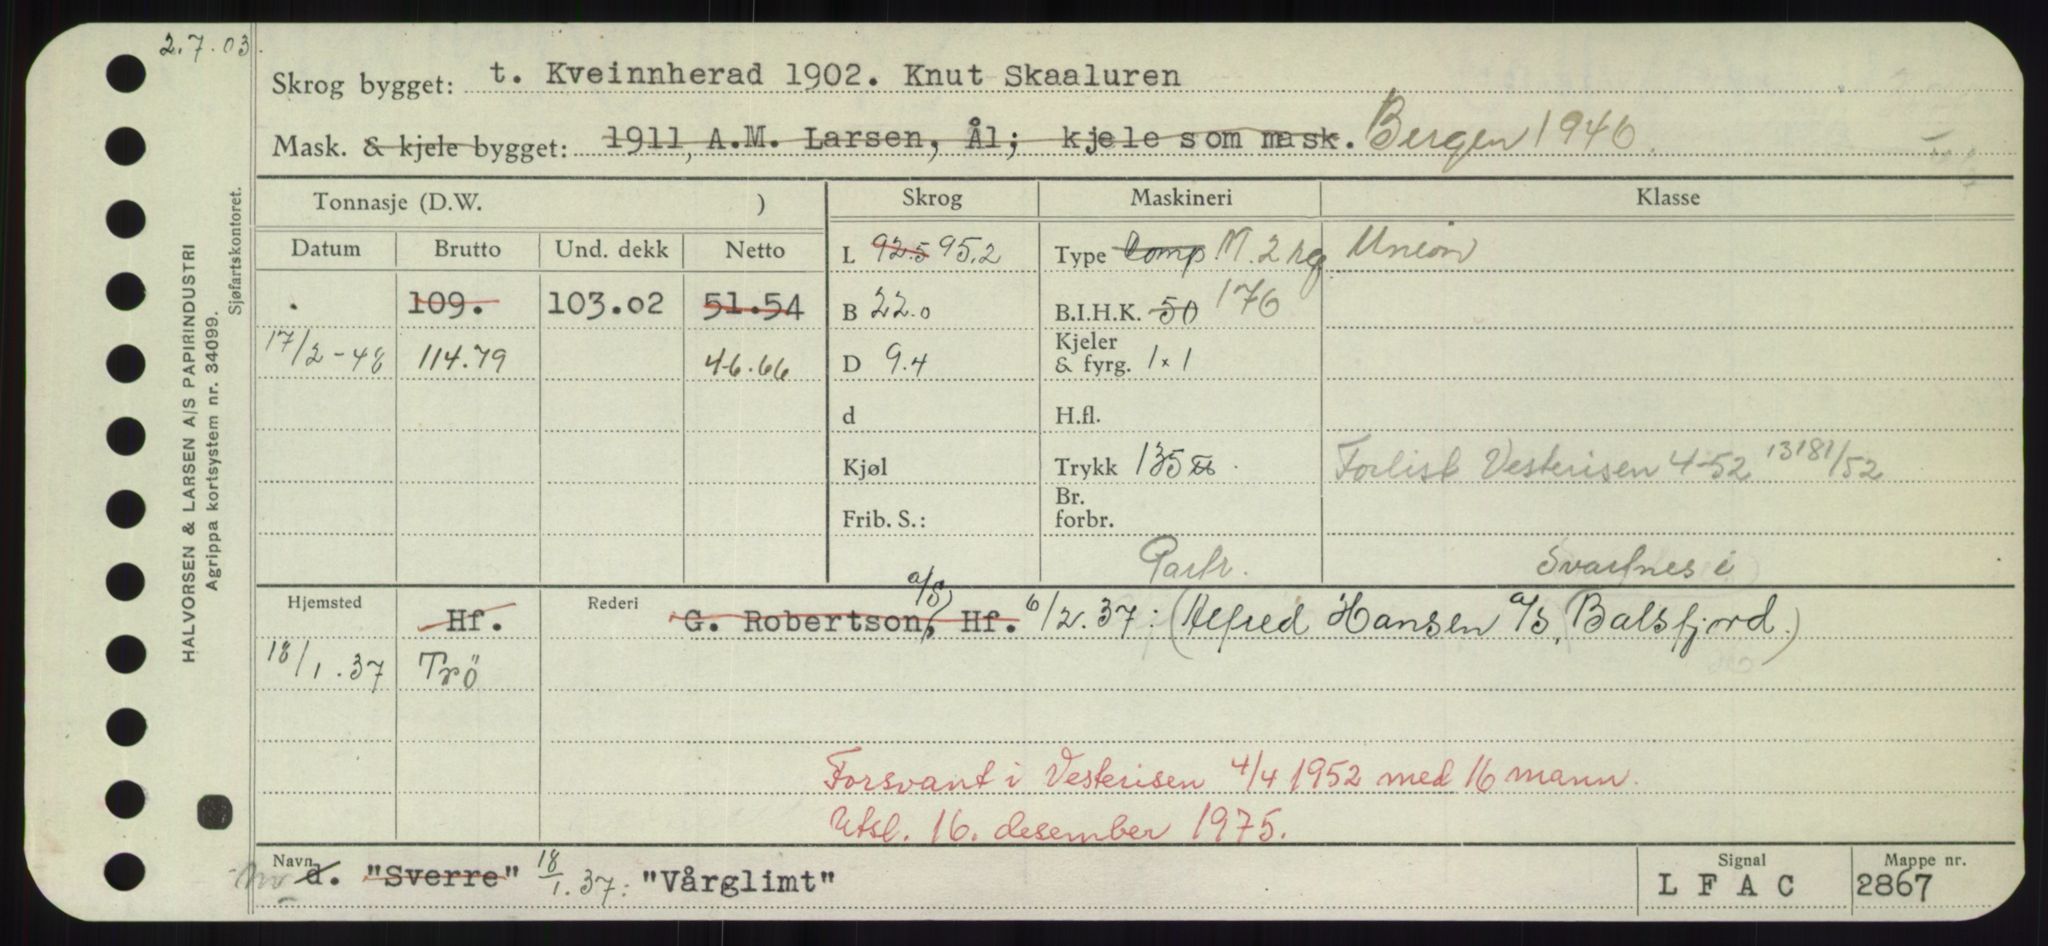 2.7.03.
Skrog bygget: t. Kveinnherad 1902. Knut Skaaluren
Mask. & kjele bygget: 1911, A.M. Larsen, Ål; kjele som mask. Bergen 1946
Tonnasje (D.W. ) Skrog Maskineri Klasse
Datum Brutto Und. dekk Netto L 92.5 95.2 Type Comp M. 2 hg Union
. 109. 103.02 51.54 B 22.0 B.I.H.K. 50 176
17/2-48 114.79 46.66 D 9.4 Kjeler & fyrg. 1x1
d H.fl.
Kjøl Trykk 135 Forlist Vesterisen 4-52 13181/52
Frib. S.: Br. forbr.
Partr. Svartnes i
Hjemsted Hf. Rederi G. Robertson, a/s, Hf. 6/2.37: (Alfred Hansen a/s, Balsfjord.)
18/1.37 Trö
Forsvant i Vesterisen 4/4 1952 med 16 mann.
Utsl. 16. desember 1975.
Navn mv d. "Sverre" 18/1.37: "Vårglimt" Signal L F A C Mappe nr. 2867
HALVORSEN & LARSEN A/S PAPIRINDUSTRI
Agrippa kortsystem nr. 34099.
Sjøfartskontoret.